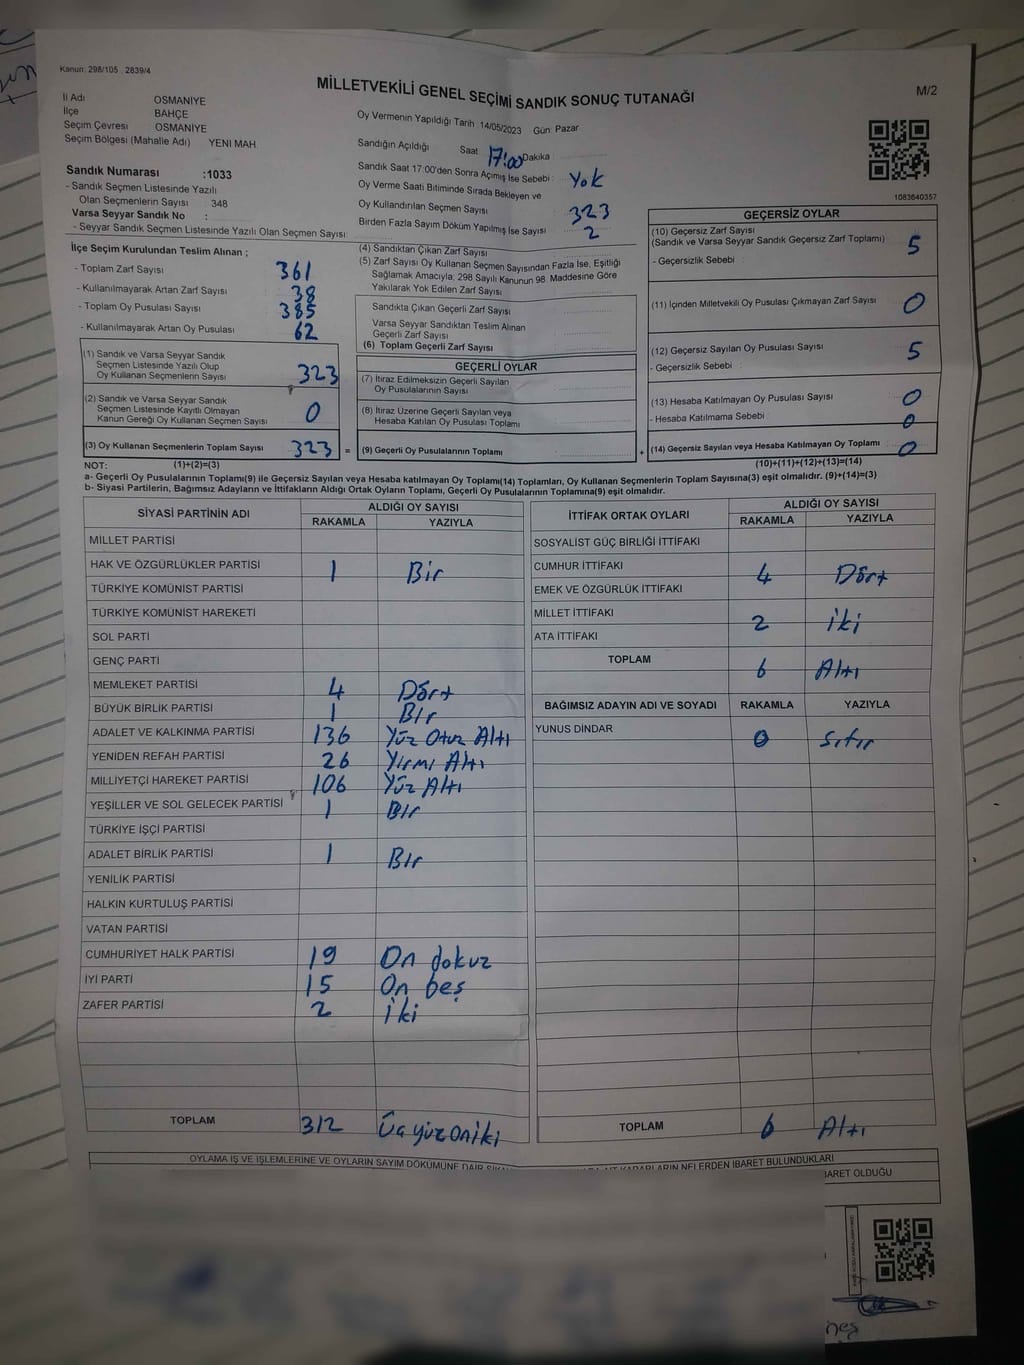 Kanun: 298/105 , 2839/4
MİLLETVEKİLİ GENEL SEÇİMİ SANDIK SONUÇ TUTANAĞI
M/2
İl Adı OSMANİYE
İlçe BAHÇE
Seçim Çevresi OSMANİYE
Seçim Bölgesi (Mahalle Adı) YENİ MAH
Sandık Numarası :1033
- Sandık Seçmen Listesinde Yazılı
Olan Seçmenlerin Sayısı : 348
Varsa Seyyar Sandık No :
- Seyyar Sandık Seçmen Listesinde Yazılı Olan Seçmen Sayısı:
Oy Vermenin Yapıldığı Tarih : 14/05/2023 Gün: Pazar
Sandığın Açıldığı Saat 17:00 Dakika
Sandık Saat 17:00'den Sonra Açımış İse Sebebi : Yok
Oy Verme Saati Bitiminde Sırada Bekleyen ve
Oy Kullandırılan Seçmen Sayısı 323
Birden Fazla Sayım Döküm Yapılmış İse Sayısı 2
1083640357
İlçe Seçim Kurulundan Teslim Alınan ;
- Toplam Zarf Sayısı 361
- Kullanılmayarak Artan Zarf Sayısı 38
- Toplam Oy Pusulası Sayısı 385
- Kullanılmayarak Artan Oy Pusulası 62
(1) Sandık ve Varsa Seyyar Sandık
Seçmen Listesinde Yazılı Olup
Oy Kullanan Seçmenlerin Sayısı 323
(2) Sandık ve Varsa Seyyar Sandık
Seçmen Listesinde Kayıtlı Olmayan
Kanun Gereği Oy Kullanan Seçmen Sayısı 0
(3) Oy Kullanan Seçmenlerin Toplam Sayısı 323 =
(4) Sandıktan Çıkan Zarf Sayısı
(5) Zarf Sayısı Oy Kullanan Seçmen Sayısından Fazla İse, Eşitliği
Sağlamak Amacıyla, 298 Sayılı Kanunun 98. Maddesine Göre
Yakılarak Yok Edilen Zarf Sayısı
Sandıkta Çıkan Geçerli Zarf Sayısı
Varsa Seyyar Sandıktan Teslim Alınan
Geçerli Zarf Sayısı
(6) Toplam Geçerli Zarf Sayısı
GEÇERLİ OYLAR
(7) İtiraz Edilmeksizin Geçerli Sayılan
Oy Pusulalarının Sayısı
(8) İtiraz Üzerine Geçerli Sayılan veya
Hesaba Katılan Oy Pusulası Toplamı
(9) Geçerli Oy Pusulalarının Toplamı +
GEÇERSİZ OYLAR
(10) Geçersiz Zarf Sayısı
(Sandık ve Varsa Seyyar Sandık Geçersiz Zarf Toplamı) 5
- Geçersizlik Sebebi :
(11) İçinden Milletvekili Oy Pusulası Çıkmayan Zarf Sayısı 0
(12) Geçersiz Sayılan Oy Pusulası Sayısı 5
- Geçersizlik Sebebi :
(13) Hesaba Katılmayan Oy Pusulası Sayısı 0
- Hesaba Katılmama Sebebi : 0
(14) Geçersiz Sayılan veya Hesaba Katılmayan Oy Toplamı 0
NOT: (1)+(2)=(3) (10)+(11)+(12)+(13)=(14)
a- Geçerli Oy Pusulalarının Toplamı(9) ile Geçersiz Sayılan veya Hesaba katılmayan Oy Toplamı(14) Toplamları, Oy Kullanan Seçmenlerin Toplam Sayısına(3) eşit olmalıdır. (9)+(14)=(3)
b- Siyasi Partilerin, Bağımsız Adayların ve İttifakların Aldığı Ortak Oyların Toplamı, Geçerli Oy Pusulalarının Toplamına(9) eşit olmalıdır.
SİYASİ PARTİNİN ADI ALDIĞI OY SAYISI
RAKAMLA YAZIYLA
MİLLET PARTİSİ
HAK VE ÖZGÜRLÜKLER PARTİSİ 1 Bir
TÜRKİYE KOMÜNİST PARTİSİ
TÜRKİYE KOMÜNİST HAREKETİ
SOL PARTİ
GENÇ PARTİ
MEMLEKET PARTİSİ 4 Dört
BÜYÜK BİRLİK PARTİSİ 1 Bir
ADALET VE KALKINMA PARTİSİ 136 Yüz Otuz Altı
YENİDEN REFAH PARTİSİ 26 Yirmi Altı
MİLLİYETÇİ HAREKET PARTİSİ 106 Yüz Altı
YEŞİLLER VE SOL GELECEK PARTİSİ 1 Bir
TÜRKİYE İŞÇİ PARTİSİ
ADALET BİRLİK PARTİSİ 1 Bir
YENİLİK PARTİSİ
HALKIN KURTULUŞ PARTİSİ
VATAN PARTİSİ
CUMHURİYET HALK PARTİSİ 19 On dokuz
İYİ PARTİ 15 On beş
ZAFER PARTİSİ 2 İki
TOPLAM 312 Üçyüz Oniki
İTTİFAK ORTAK OYLARI ALDIĞI OY SAYISI
RAKAMLA YAZIYLA
SOSYALİST GÜÇ BİRLİĞİ İTTİFAKI
CUMHUR İTTİFAKI 4 Dört
EMEK VE ÖZGÜRLÜK İTTİFAKI
MİLLET İTTİFAKI 2 İki
ATA İTTİFAKI
TOPLAM 6 Altı
BAĞIMSIZ ADAYIN ADI VE SOYADI RAKAMLA YAZIYLA
YUNUS DİNDAR 0 Sıfır
TOPLAM 6 Altı
OYLAMA İŞ VE İŞLEMLERİNE VE OYLARIN SAYIM DÖKÜMÜNE DAİR
KARARLARIN NELERDEN İBARET BULUNDUKLARI
OLDUĞU